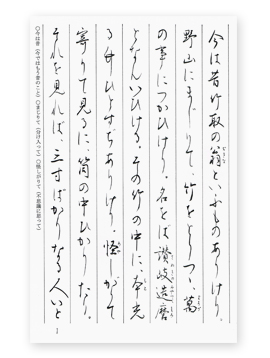 今は昔竹取の翁といふものありけり。
野山にまじりて、竹をとりつつ、萬
の事につかひけり。名をば讃岐造磨
となんいひける。その竹の中に、本光
る竹ひとすぢありけり。怪しがりて
寄りて見るに、筒の中ひかりたり。
それを見れば、三寸ばかりなる人いと
〇今は昔(今ではもう昔のこと)〇まじりて(分け入って)〇怪しがりて(不思議に思って)